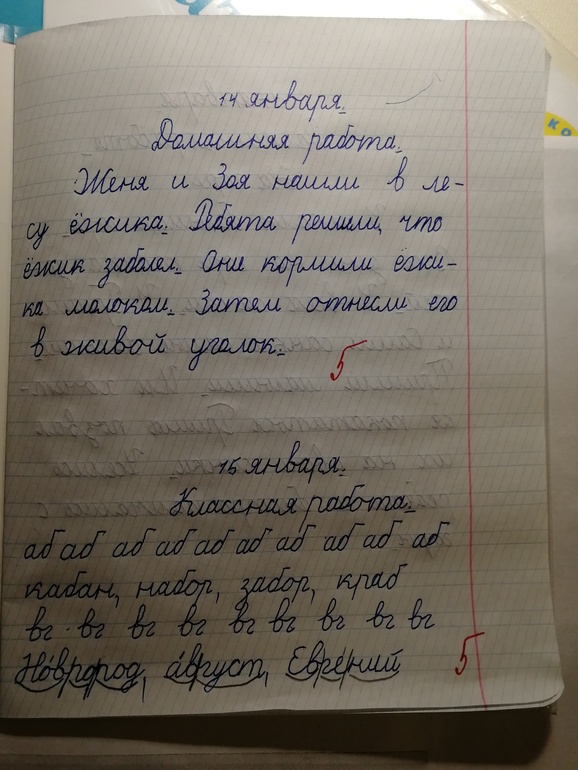 14 января.
Домашняя работа.
Женя и Зоя нашли в ле-
су ёжика. Ребята решили, что
ёжик заболел. Они кормили ёжи-
ка молоком. Затем отнесли его
в живой уголок.
5
15 января.
Классная работа.
аб аб аб аб аб аб аб аб аб аб
кабан, набор, забор, краб
вг вг вг вг вг вг вг вг вг
август, Евгений
5